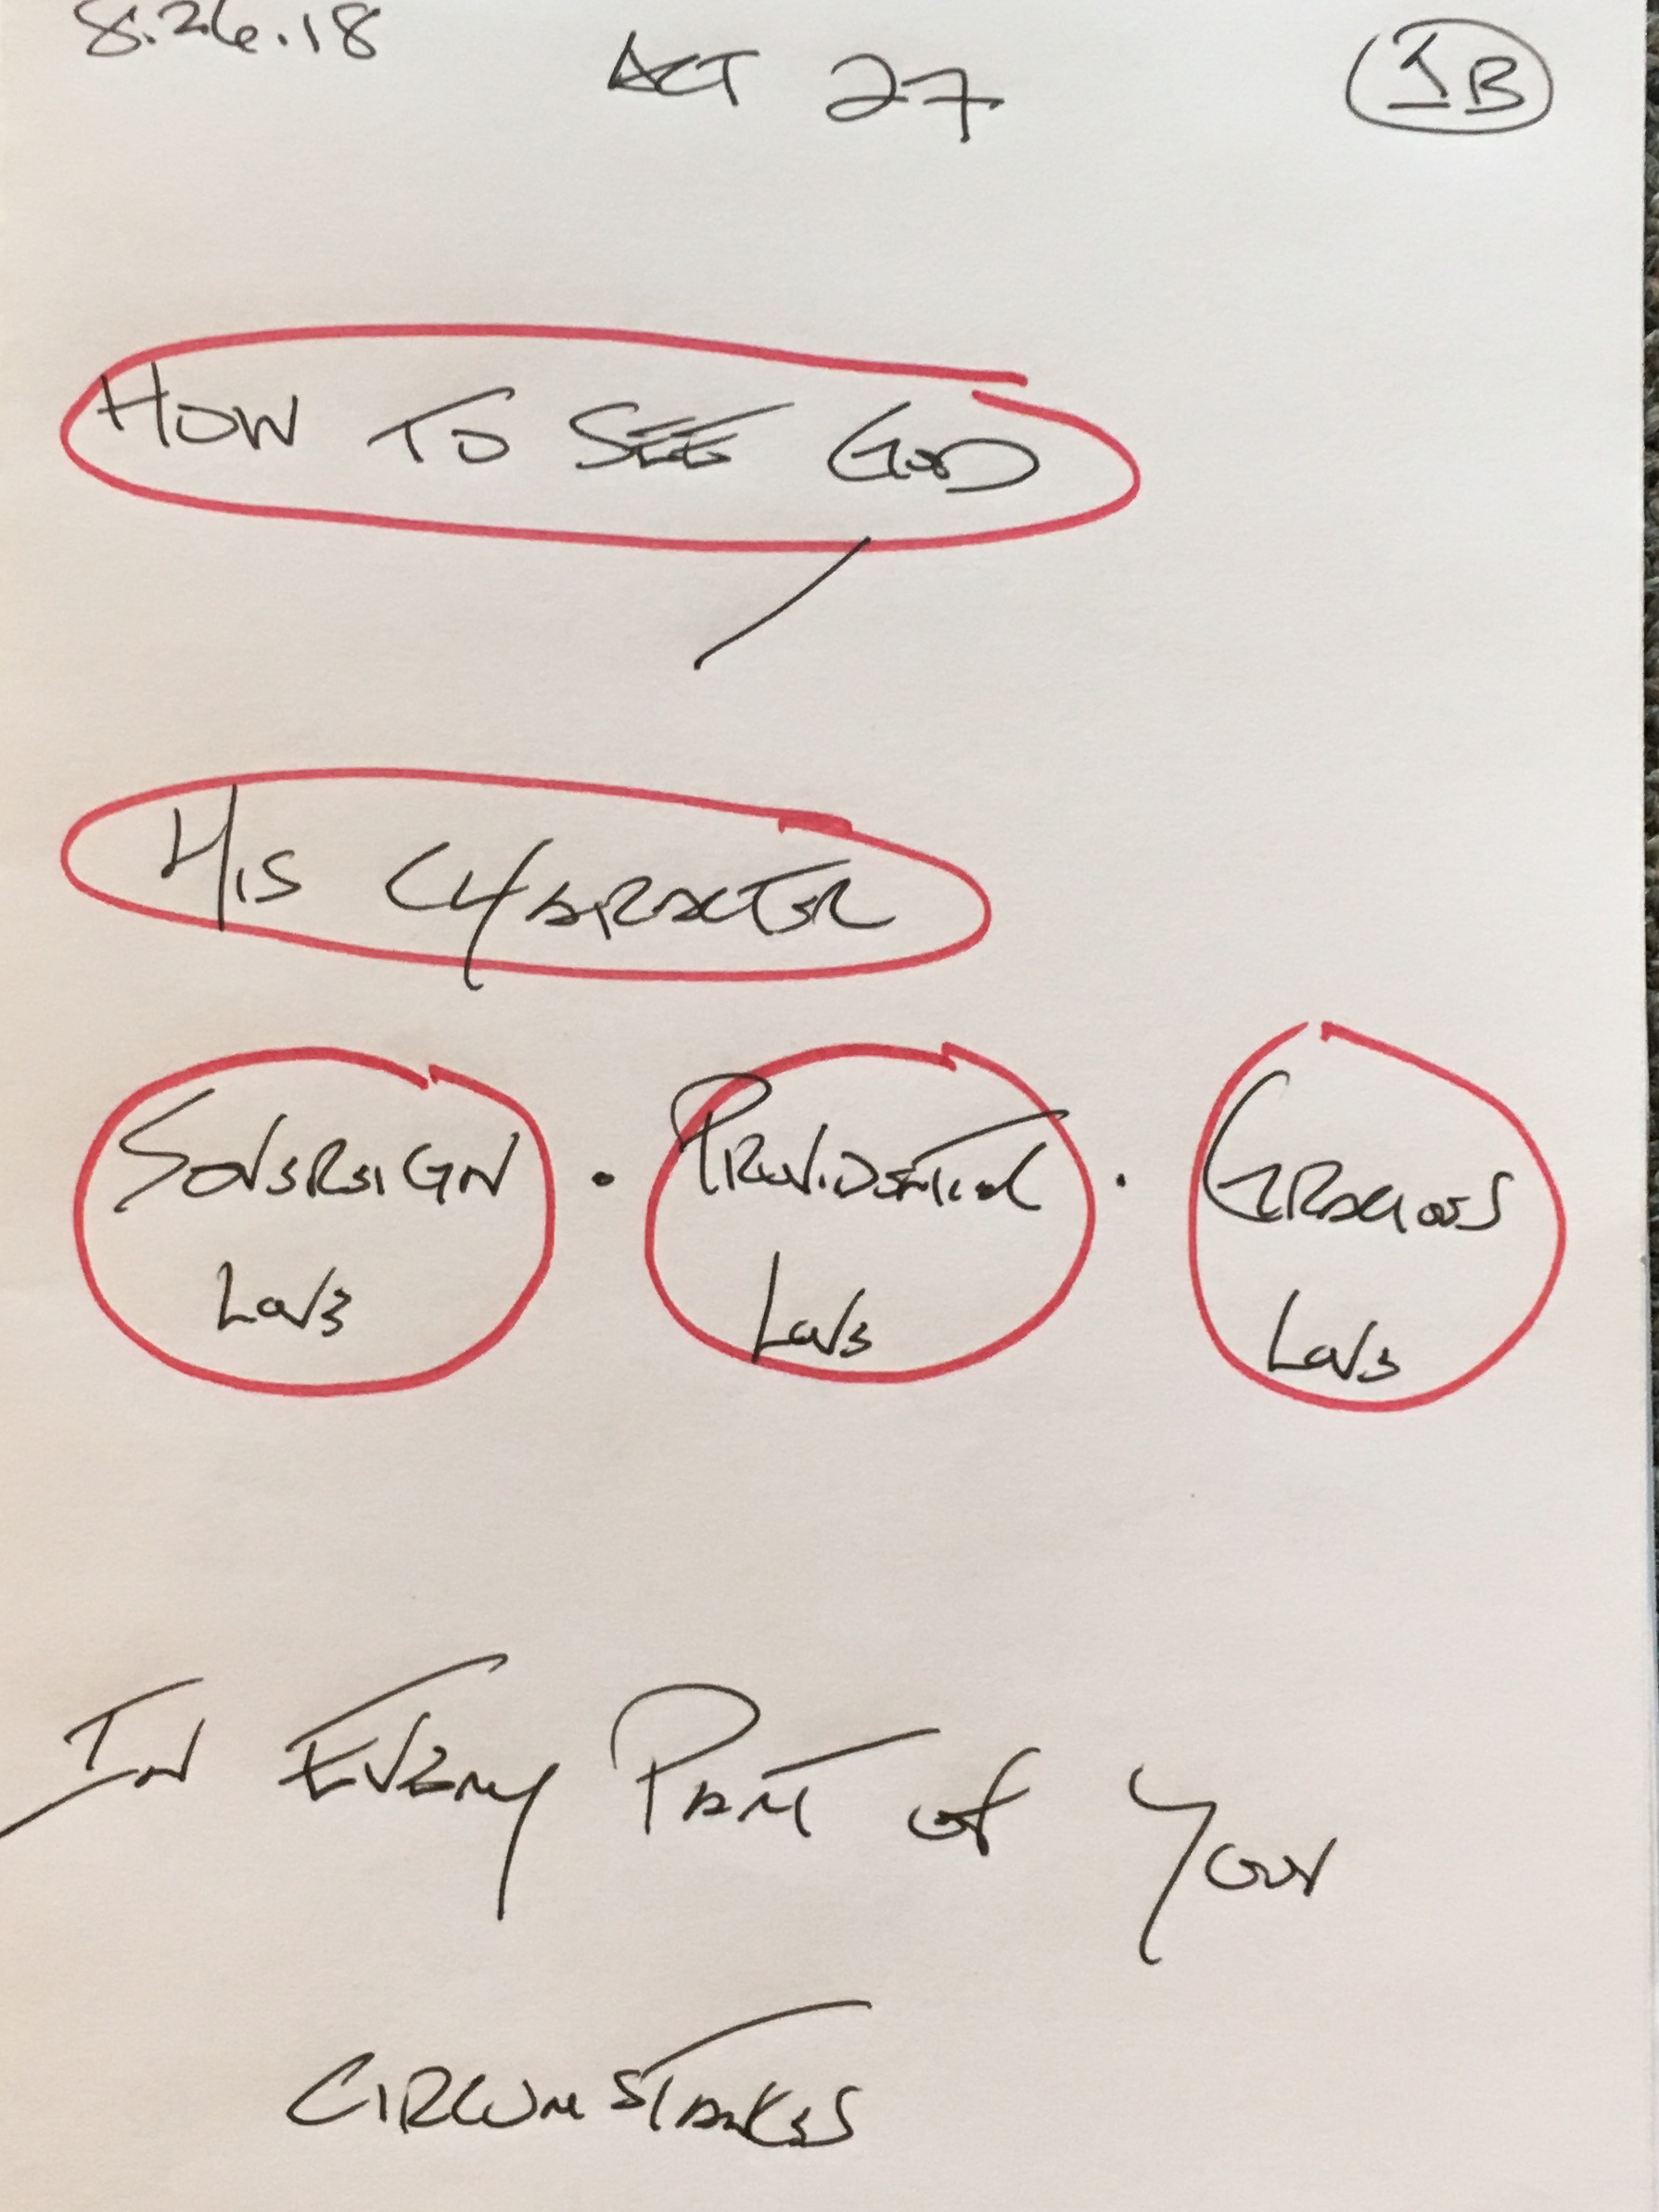 8.26.18 ACT 27 IB
HOW TO SEE GOD
HIS CHARACTER
SOVEREIGN · PROVIDENTIAL · GRACIOUS
LOVE LOVE LOVE
IN EVERY PART OF YOUR
CIRCUMSTANCES